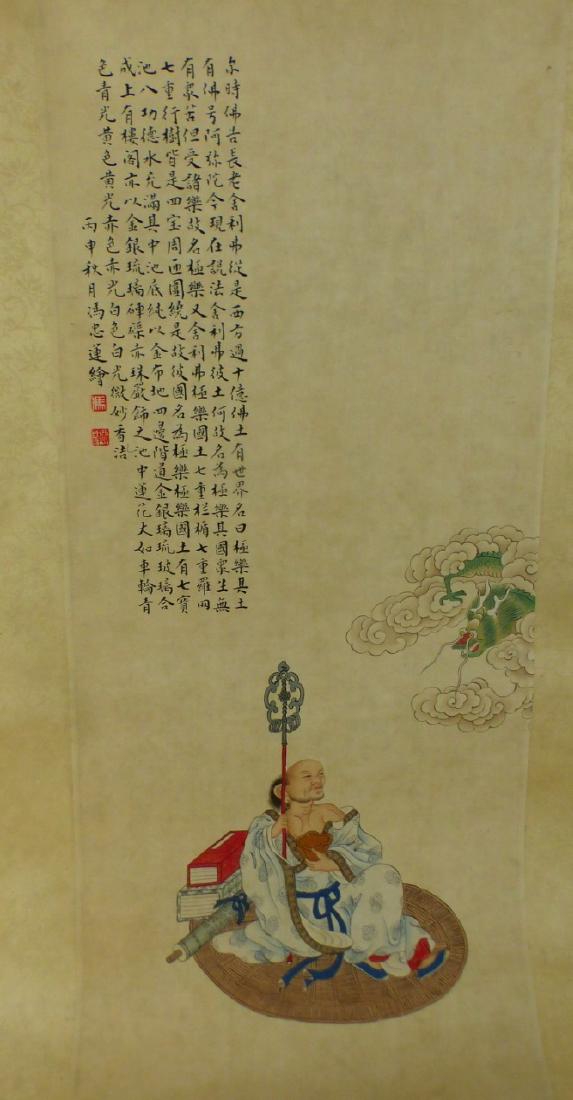 尔時佛告長老舍利弗從是西方過十億佛土有世界名曰極樂其土
有佛号阿弥陀今現在説法舍利弗彼土何故名為極樂其國衆生無
有衆苦但受諸樂故名極樂又舍利弗極樂國土七重栏楯七重羅网
七重行樹皆是四宝周匝圍繞是故彼國名為極樂極樂國土有七寶
池八功德水充滿其中池底純以金布地四邊階道金銀琉璃玻璃合
成上有樓閣亦以金銀琉璃磲赤珠嚴飾之池中蓮花大如車輪青
色青光黄色黄光赤色赤光白色白光微妙香洁
丙申秋月馮忠蓮繪